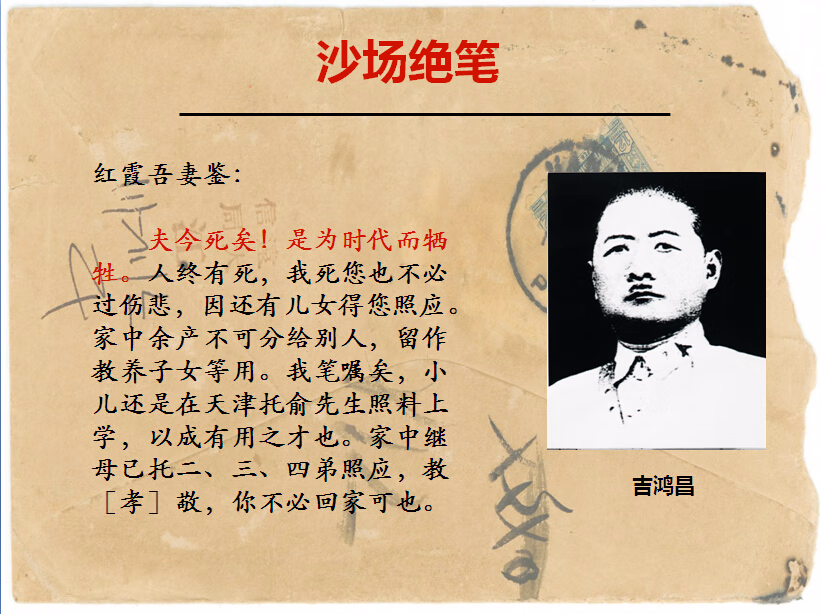 沙场绝笔
红霞吾妻鉴：
夫今死矣！是为时代而牺
牲。人终有死，我死您也不必
过伤悲，因还有儿女得您照应。
家中余产不可分给别人，留作
教养子女等用。我笔嘱矣，小
儿还是在天津托俞先生照料上
学，以成有用之才也。家中继
母已托二、三、四弟照应，教
［孝］敬，你不必回家可也。
吉鸿昌